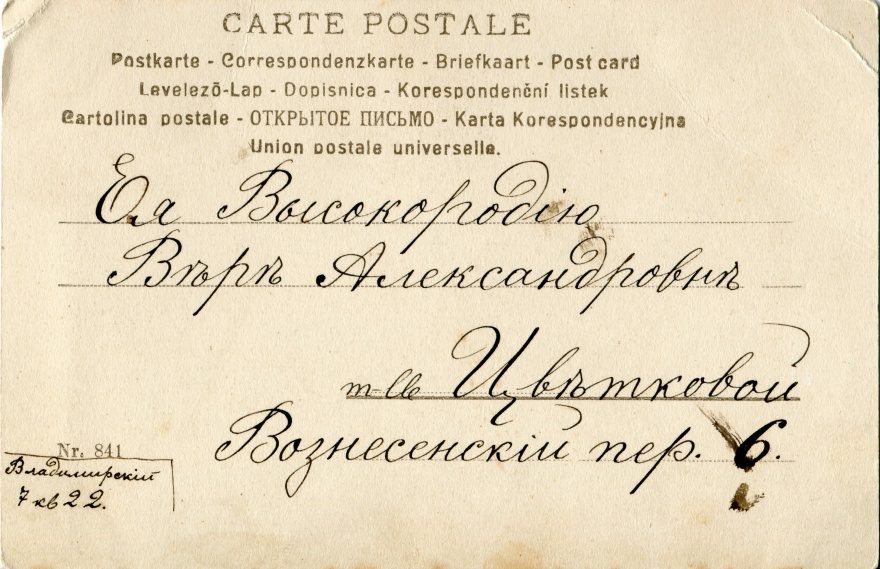 CARTE POSTALE
Postkarte - Correspondenzkarte - Briefkaart - Post card
Levelező-Lap - Dopisnica - Korespondenční listek
Cartolina postale - ОТКРЫТОЕ ПИСЬМО - Karta Korespondencyjna
Union postale universelle.
Ея Высокородію
Вѣрѣ Александровнѣ
Цвѣтковой
Вознесенскій пер. 6.
Nr. 841
Владимирскій
7 кв 22.